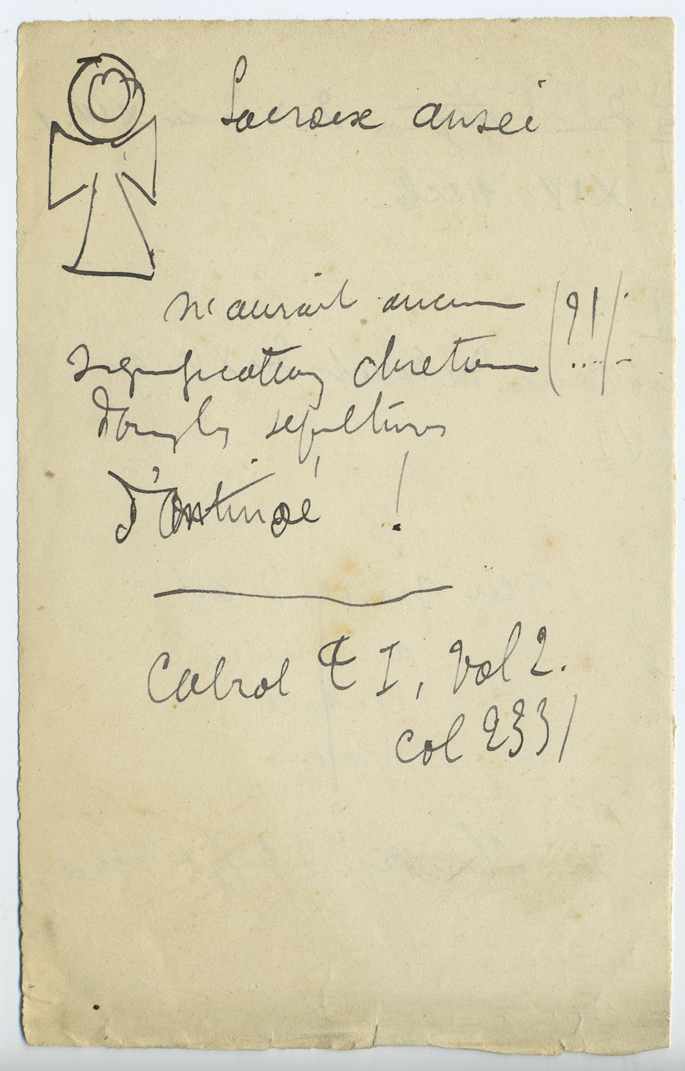 La croix ansée
n'aurait aucune (?!)
signification chretienne
dans les sépultures
d'Antinoé !
Cabrol t I, Vol 2.
Col 2331